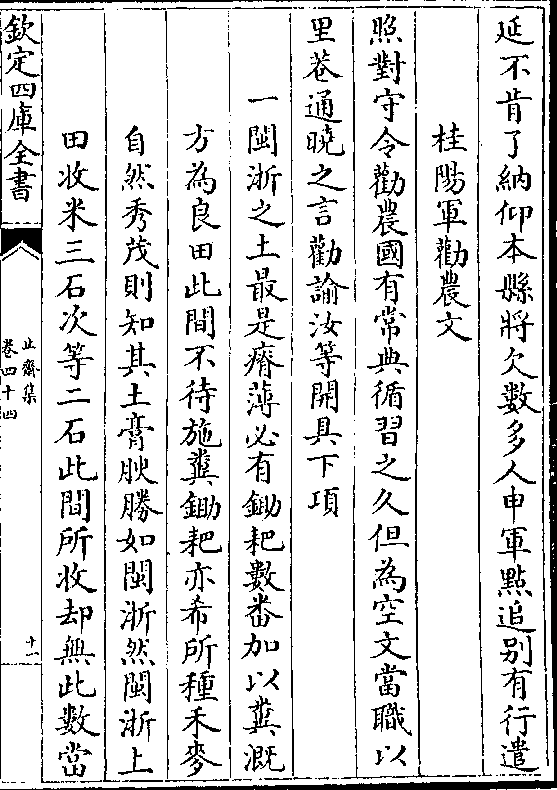 延不肯了納仰本縣將欠數多人申軍點追别有行遣
桂陽軍勸農文
照對守令勸農國有常典循習之久但為空文當職以
里巷通曉之言勸諭汝等開具下項
一閩浙之土最是瘠薄必有鋤耙數番加以糞溉
方為良田此間不待施糞鋤耙亦希所種禾麥
自然秀茂則知其土膏腴勝如閩浙然閩浙上
田收米三石次等二石此間所收却無此數當
欽定四庫全書
止齋集
卷四十四
十一